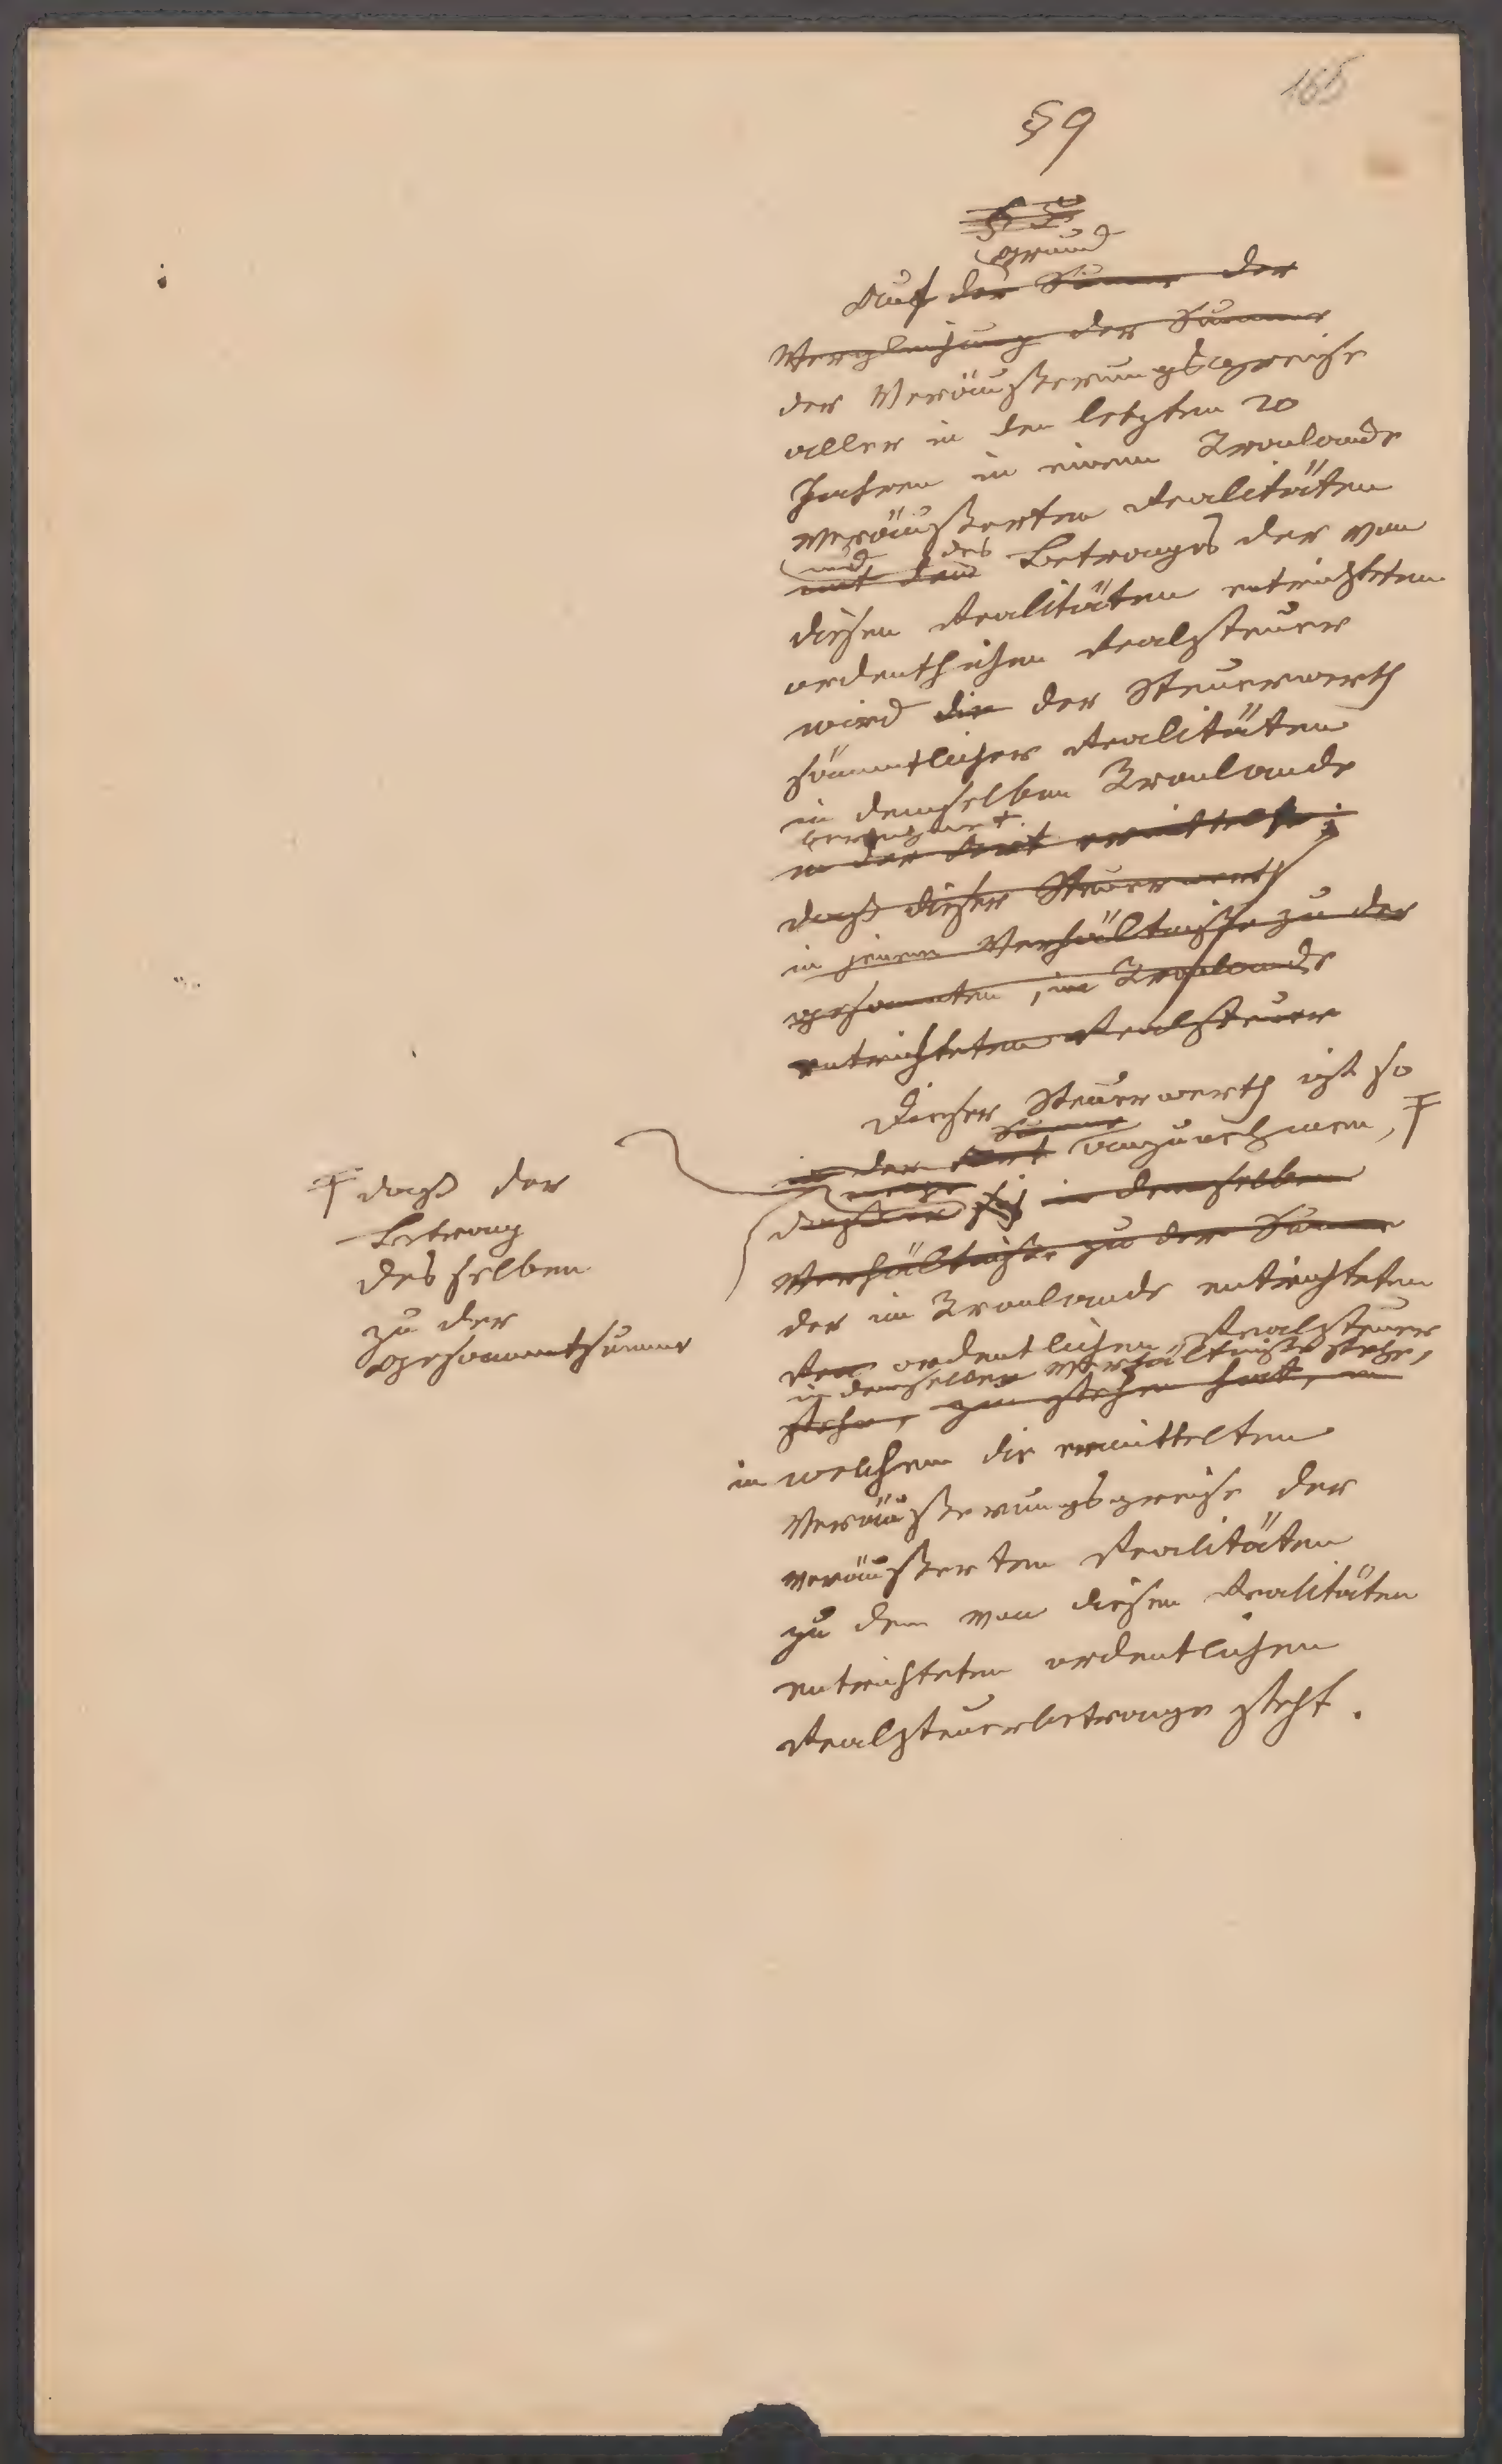 165
§ 9
§ 8
Grund
Auf der Summe der
Vergleichung der Summe
der Veräußerungspreise
aller in den letzten 20
Jahren in einem Kronlande
veräußerten Realitäten
und des
mit dem Betrages der von
diesen Realitäten entrichteten
ordentlichen Realsteuer
wird die der Steuerwerth
sämmtlicher Realitäten
in demselben Kronlande
berechnet.
in der Art ermittelt;
daß dieser Steuerwerth
in jenem Verhältnisse zu der
gesammten, im Kronlande
entrichteten Realsteuer
Dieser Steuerwerth ist so
Summe
in der Art anzunehmen,
daß er sich in demselben
Verhältnisse zu der Summe
der im Kronlande entrichteten
Rea ordentlichen Realsteuer
in demselben Verhältnisse stehe,
stehe, zu stehen hat, in
in welchem die ermittelten
Veräußerungspreise der
veräußerten Realitäten
zu dem von diesen Realitäten
entrichteten ordentlichen
Realsteuerbetrage steht.
daß der
Betrag
desselben
zu der
Gesammtsumme